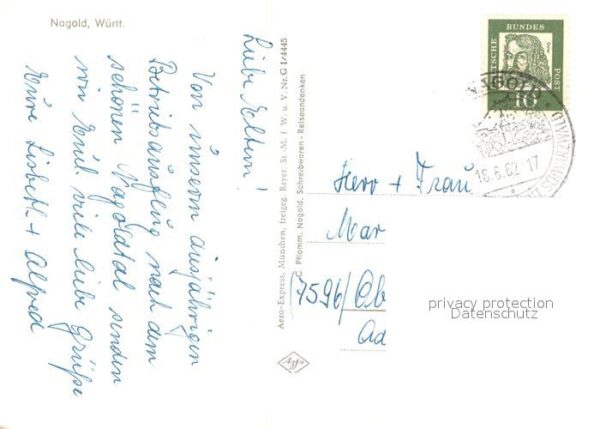 Nagold, Württ.
Liebe Eltern!
Von unserm diesjährigen
Betriebsausflug nach dem
schönen Nagoldtal senden
wir Euch viele liebe Grüße
Eure Lisbeth + Alfred
Aero-Express, München, freigeg. Bayer. St. M. f. W. u. V. Nr. G 1/4445
C. Pflomm, Nagold, Schreibwaren - Reiseandenken
DEUTSCHE BUNDESPOST
10
NAGOLD
16.6.62-17
Herr + Frau
Mar
(7596) Ob
Ad
privacy protection
Datenschutz